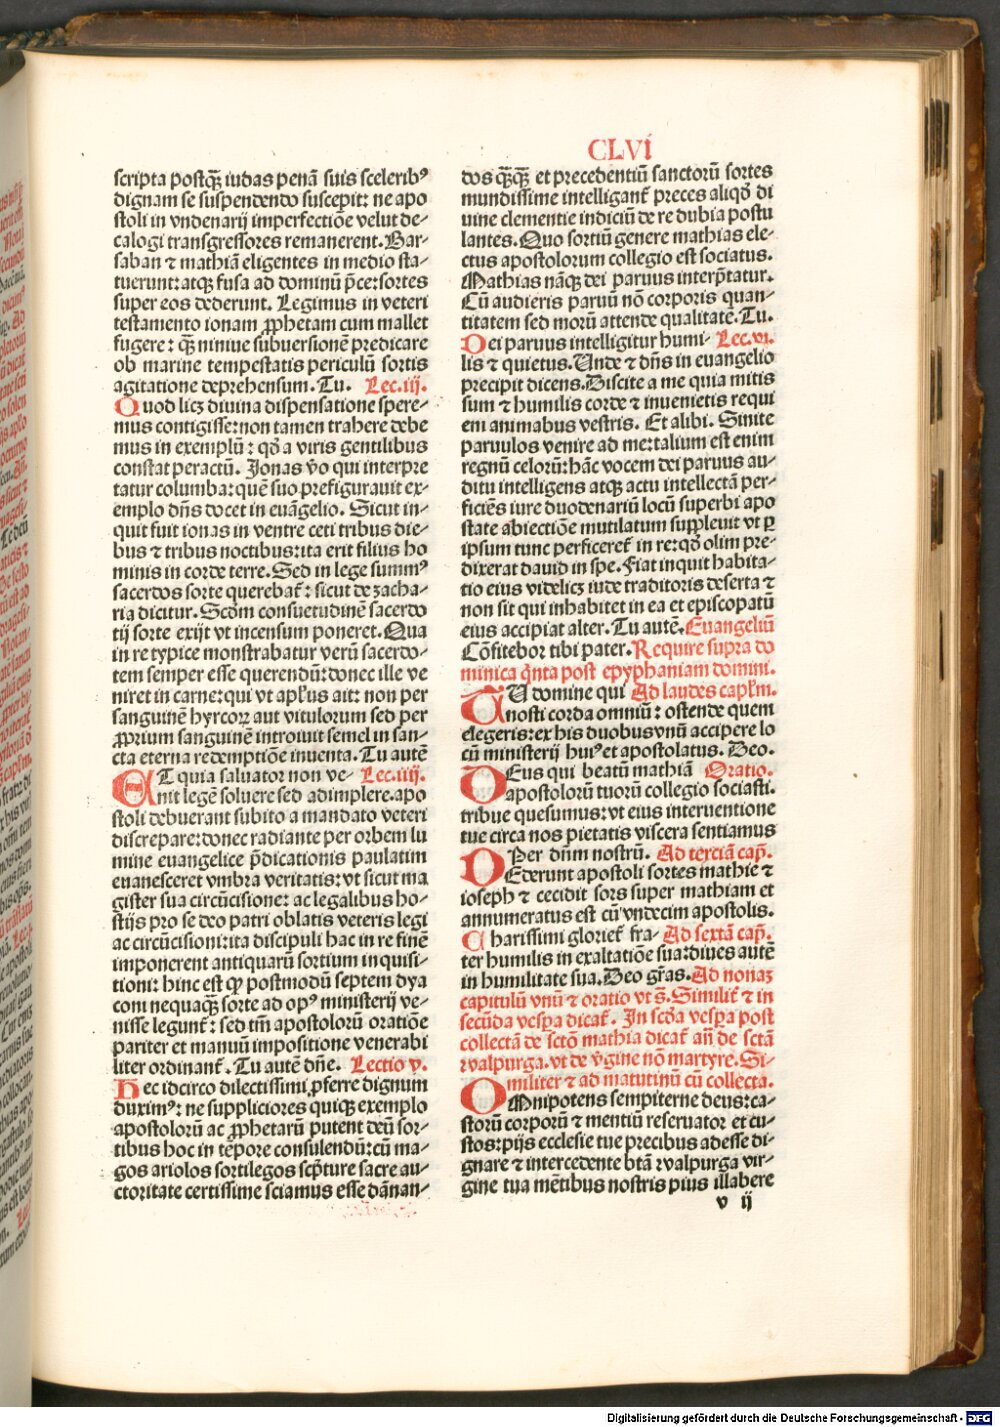 CLVI
scripta postq̃ iudas penã suis sceleribꝰ
dignam se suspendendo suscepit: ne apo
stoli in vndenarij imperfectiõe velut de-
calogi transgressores remanerent. Bar-
saban ⁊ mathiã eligentes in medio sta-
tuerunt: atqꝫ fusa ad dominũ p̃ce: sortes
super eos dederunt. Legimus in veteri
testamento ionam ꝓphetam cum mallet
fugere: q̃ niniue subuersionẽ predicare
ob marine tempestatis periculũ sortis
agitatione deprehensum. Tu. Lec. iij.
Quod licꝫ diuina dispensatione spere-
mus contigisse: non tamen trahere debe
mus in exemplũ: qð a viris gentilibus
constat peractũ. Jonas ṽo qui interpre
tatur columba: quẽ suo prefigurauit ex-
emplo dñs docet in euãgelio. Sicut in-
quit fuit ionas in ventre ceti tribus die-
bus ⁊ tribus noctibus: ita erit filius ho
minis in corde terre. Sed in lege summꝰ
sacerdos sorte querebat̃: sicut de zacha-
ria dicitur. Scðm consuetudinẽ sacerdo
tij sorte exijt vt incensum poneret. Qua
in re typice monstrabatur verũ sacerdo-
tem semper esse querendũ: donec ille ve
niret in carne: qui vt apl̃us ait: non per
sanguinẽ hyrcoꝝ aut vitulorum sed per
ꝓprium sanguinẽ introiuit semel in san-
cta eterna redemptiõe inuenta. Tu autẽ
ET quia saluator non ve- Lec. iiij.
nit legẽ soluere sed adimplere. apo
stoli debuerant subito a mandato veteri
discrepare: donec radiante per orbem lu
mine euangelice p̃dicationis paulatim
euanesceret vmbra veritatis: vt sicut ma
gister sua circũcisione: ac legalibus ho-
stijs pro se deo patri oblatis veteris legi
ac circũcisioni: ita discipuli hac in re finẽ
imponerent antiquarũ sortium inquisi-
tioni: hinc est ꝙ postmodũ septem dya
coni nequaꝗ̃ sorte ad opꝰ ministerij ve-
nisse legunt̃: sed tm̃ apostolorũ oratiõe
pariter et manuũ impositione venerabi
liter ordinant̃. Tu autẽ dñe. Lectio v.
Hec idcirco dilectissimi ꝓferre dignum
duximꝰ: ne suppliciores quiqꝫ exemplo
apostolorũ ac ꝓphetarũ putent deũ sor-
tibus hoc in tẽpore consulendũ: cũ ma-
gos ariolos sortilegos scp̃ture sacre au-
ctoritate certissime sciamus esse dãnan-
dos q̃q̃ et precedentiũ sanctorũ sortes
mundissime intelligant̃ preces aliqð di
uine clementie indiciũ de re dubia postu
lantes. Quo sortiũ genere mathias ele-
ctus apostolorum collegio est sociatus.
Mathias nãqꝫ dei paruus interp̃tatur.
Cũ audieris paruũ nõ corporis quan-
titatem sed morũ attende qualitatẽ. Tu.
Dei paruus intelligitur humi- Lec. vi.
lis ⁊ quietus. Unde ⁊ dñs in euangelio
precipit dicens. Discite a me quia mitis
sum ⁊ humilis corde ⁊ inuenietis requi
em animabus vestris. Et alibi. Sinite
paruulos venire ad me: talium est enim
regnũ celorũ: hãc vocem dei paruus au-
ditu intelligens atqꝫ actu intellectã per-
ficiẽs iure duodenariũ locũ superbi apo
state abiectiõe mutilatum suppleuit vt ꝑ
ipsum tunc perficeret̃ in re: qð olim pre-
dixerat dauid in spe. Fiat inquit habita-
tio eius videlicꝫ iude traditoris deserta ⁊
non sit qui inhabitet in ea et episcopatũ
eius accipiat alter. Tu autẽ. Euangeliũ
Cõfitebor tibi pater. Require supra do
minica q̃nta post epyphaniam domini.
TU domine qui Ad laudes capl̃m.
nosti corda omniũ: ostende quem
elegeris: ex his duobus vnũ accipere lo
cũ ministerij huiꝰ et apostolatus. Deo.
DEus qui beatũ mathiã Oratio.
apostolorũ tuorũ collegio sociasti.
tribue quesumus: vt eius interuentione
tue circa nos pietatis viscera sentiamus
Per dñm nostrũ. Ad terciã cap̃.
DEderunt apostoli sortes mathie ⁊
ioseph ⁊ cecidit sors super mathiam et
annumeratus est cũ vndecim apostolis.
Charissimi gloriet̃ fra- Ad sextã cap̃.
ter humilis in exaltatiõe sua: diues autẽ
in humilitate sua. Deo gr̃as. Ad nonaꝫ
capitulũ vnũ ⁊ oratio vt s̃. Similit̃ ⁊ in
secũda vesp̃a dicat̃. In scð̃a vesp̃a post
collectã de sctõ mathia dicat̃ añ de sctã
walpurga. vt de v̈gine nõ martyre. Si-
militer ⁊ ad matutinũ cũ collecta.
OMnipotens sempiterne deus: ca-
storũ corporũ ⁊ mentiũ reseruator et cu-
stos: pijs ecclesie tue precibus adesse di-
gnare ⁊ intercedente btã walpurga vir-
gine tua mẽtibus nostris pius illabere
v ij
Digitalisierung gefördert durch die Deutsche Forschungsgemeinschaft - DFG